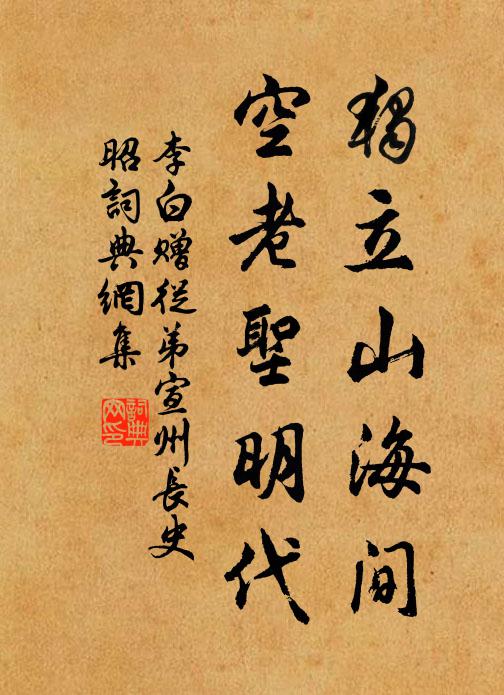 獨立山海间
空老聖明代
李白赠從弟宣州長史
昭詞典網集
詞典
网印